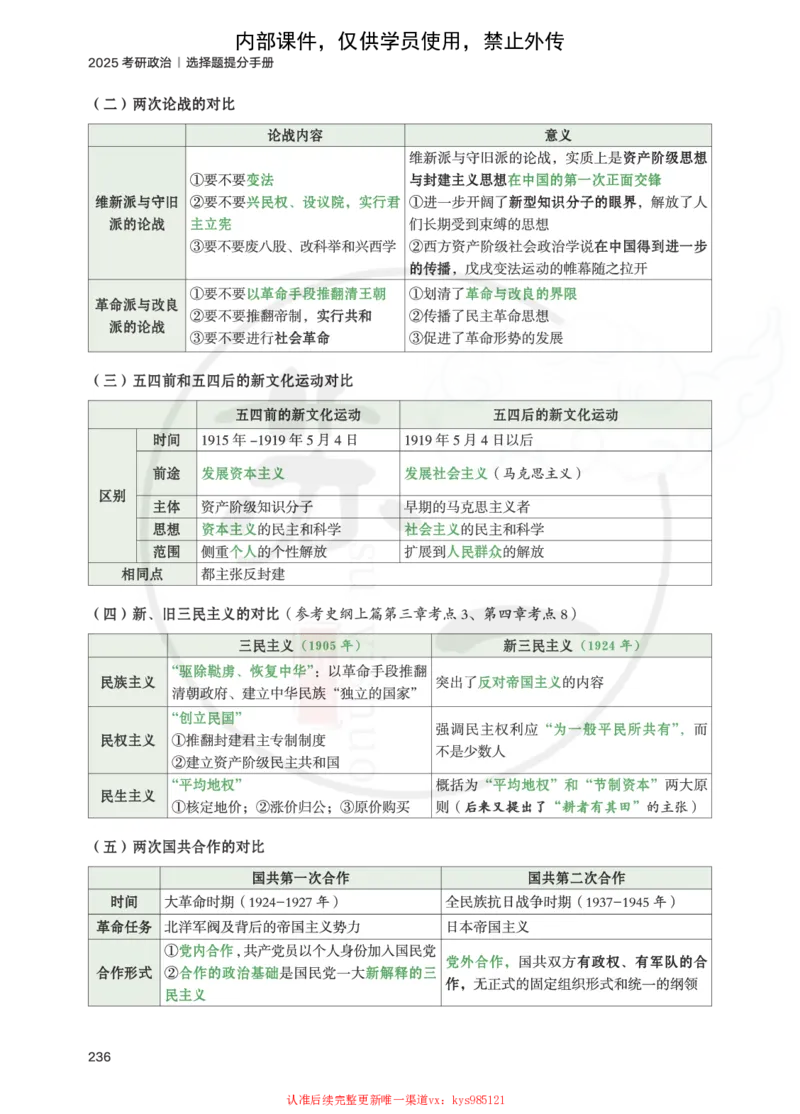 内部课件，仅供学员使用，禁止外传
2025 考研政治｜选择题提分手册
（二）两次论战的对比
论战内容 意义
维新派与守旧派的论战
①要不要变法
②要不要兴民权、设议院，实行君主立宪
③要不要废八股、改科举和兴西学
维新派与守旧派的论战，实质上是资产阶级思想
与封建主义思想在中国的第一次正面交锋
①进一步开阔了新型知识分子的眼界，解放了人
们长期受到束缚的思想
②西方资产阶级社会政治学说在中国得到进一步
的传播，戊戌变法运动的帷幕随之拉开
革命派与改良派的论战
①要不要以革命手段推翻清王朝
②要不要推翻帝制，实行共和
③要不要进行社会革命
①划清了革命与改良的界限
②传播了民主革命思想
③促进了革命形势的发展
（三）五四前和五四后的新文化运动对比
五四前的新文化运动 五四后的新文化运动
区别
时间 1915 年 –1919 年 5 月 4 日 1919 年 5 月 4 日以后
前途 发展资本主义 发展社会主义（马克思主义）
主体 资产阶级知识分子 早期的马克思主义者
思想 资本主义的民主和科学 社会主义的民主和科学
范围 侧重个人的个性解放 扩展到人民群众的解放
相同点 都主张反封建
（四）新、旧三民主义的对比（参考史纲上篇第三章考点 3、第四章考点 8）
三民主义（1905 年） 新三民主义（1924 年）
民族主义
“驱除鞑虏、恢复中华”：以革命手段推翻
清朝政府、建立中华民族“独立的国家”
突出了反对帝国主义的内容
民权主义
“创立民国”
①推翻封建君主专制制度
②建立资产阶级民主共和国
强调民主权利应“为一般平民所共有”，而
不是少数人
民生主义
“平均地权”
①核定地价；②涨价归公；③原价购买
概括为“平均地权”和“节制资本”两大原
则（后来又提出了“耕者有其田”的主张）
（五）两次国共合作的对比
国共第一次合作 国共第二次合作
时间 大革命时期（1924–1927 年） 全民族抗日战争时期（1937–1945 年）
革命任务 北洋军阀及背后的帝国主义势力 日本帝国主义
合作形式
①党内合作，共产党员以个人身份加入国民党
②合作的政治基础是国民党一大新解释的三
民主义
党外合作，国共双方有政权、有军队的合
作，无正式的固定组织形式和统一的纲领
236
认准后续完整更新唯一渠道vx：kys985121